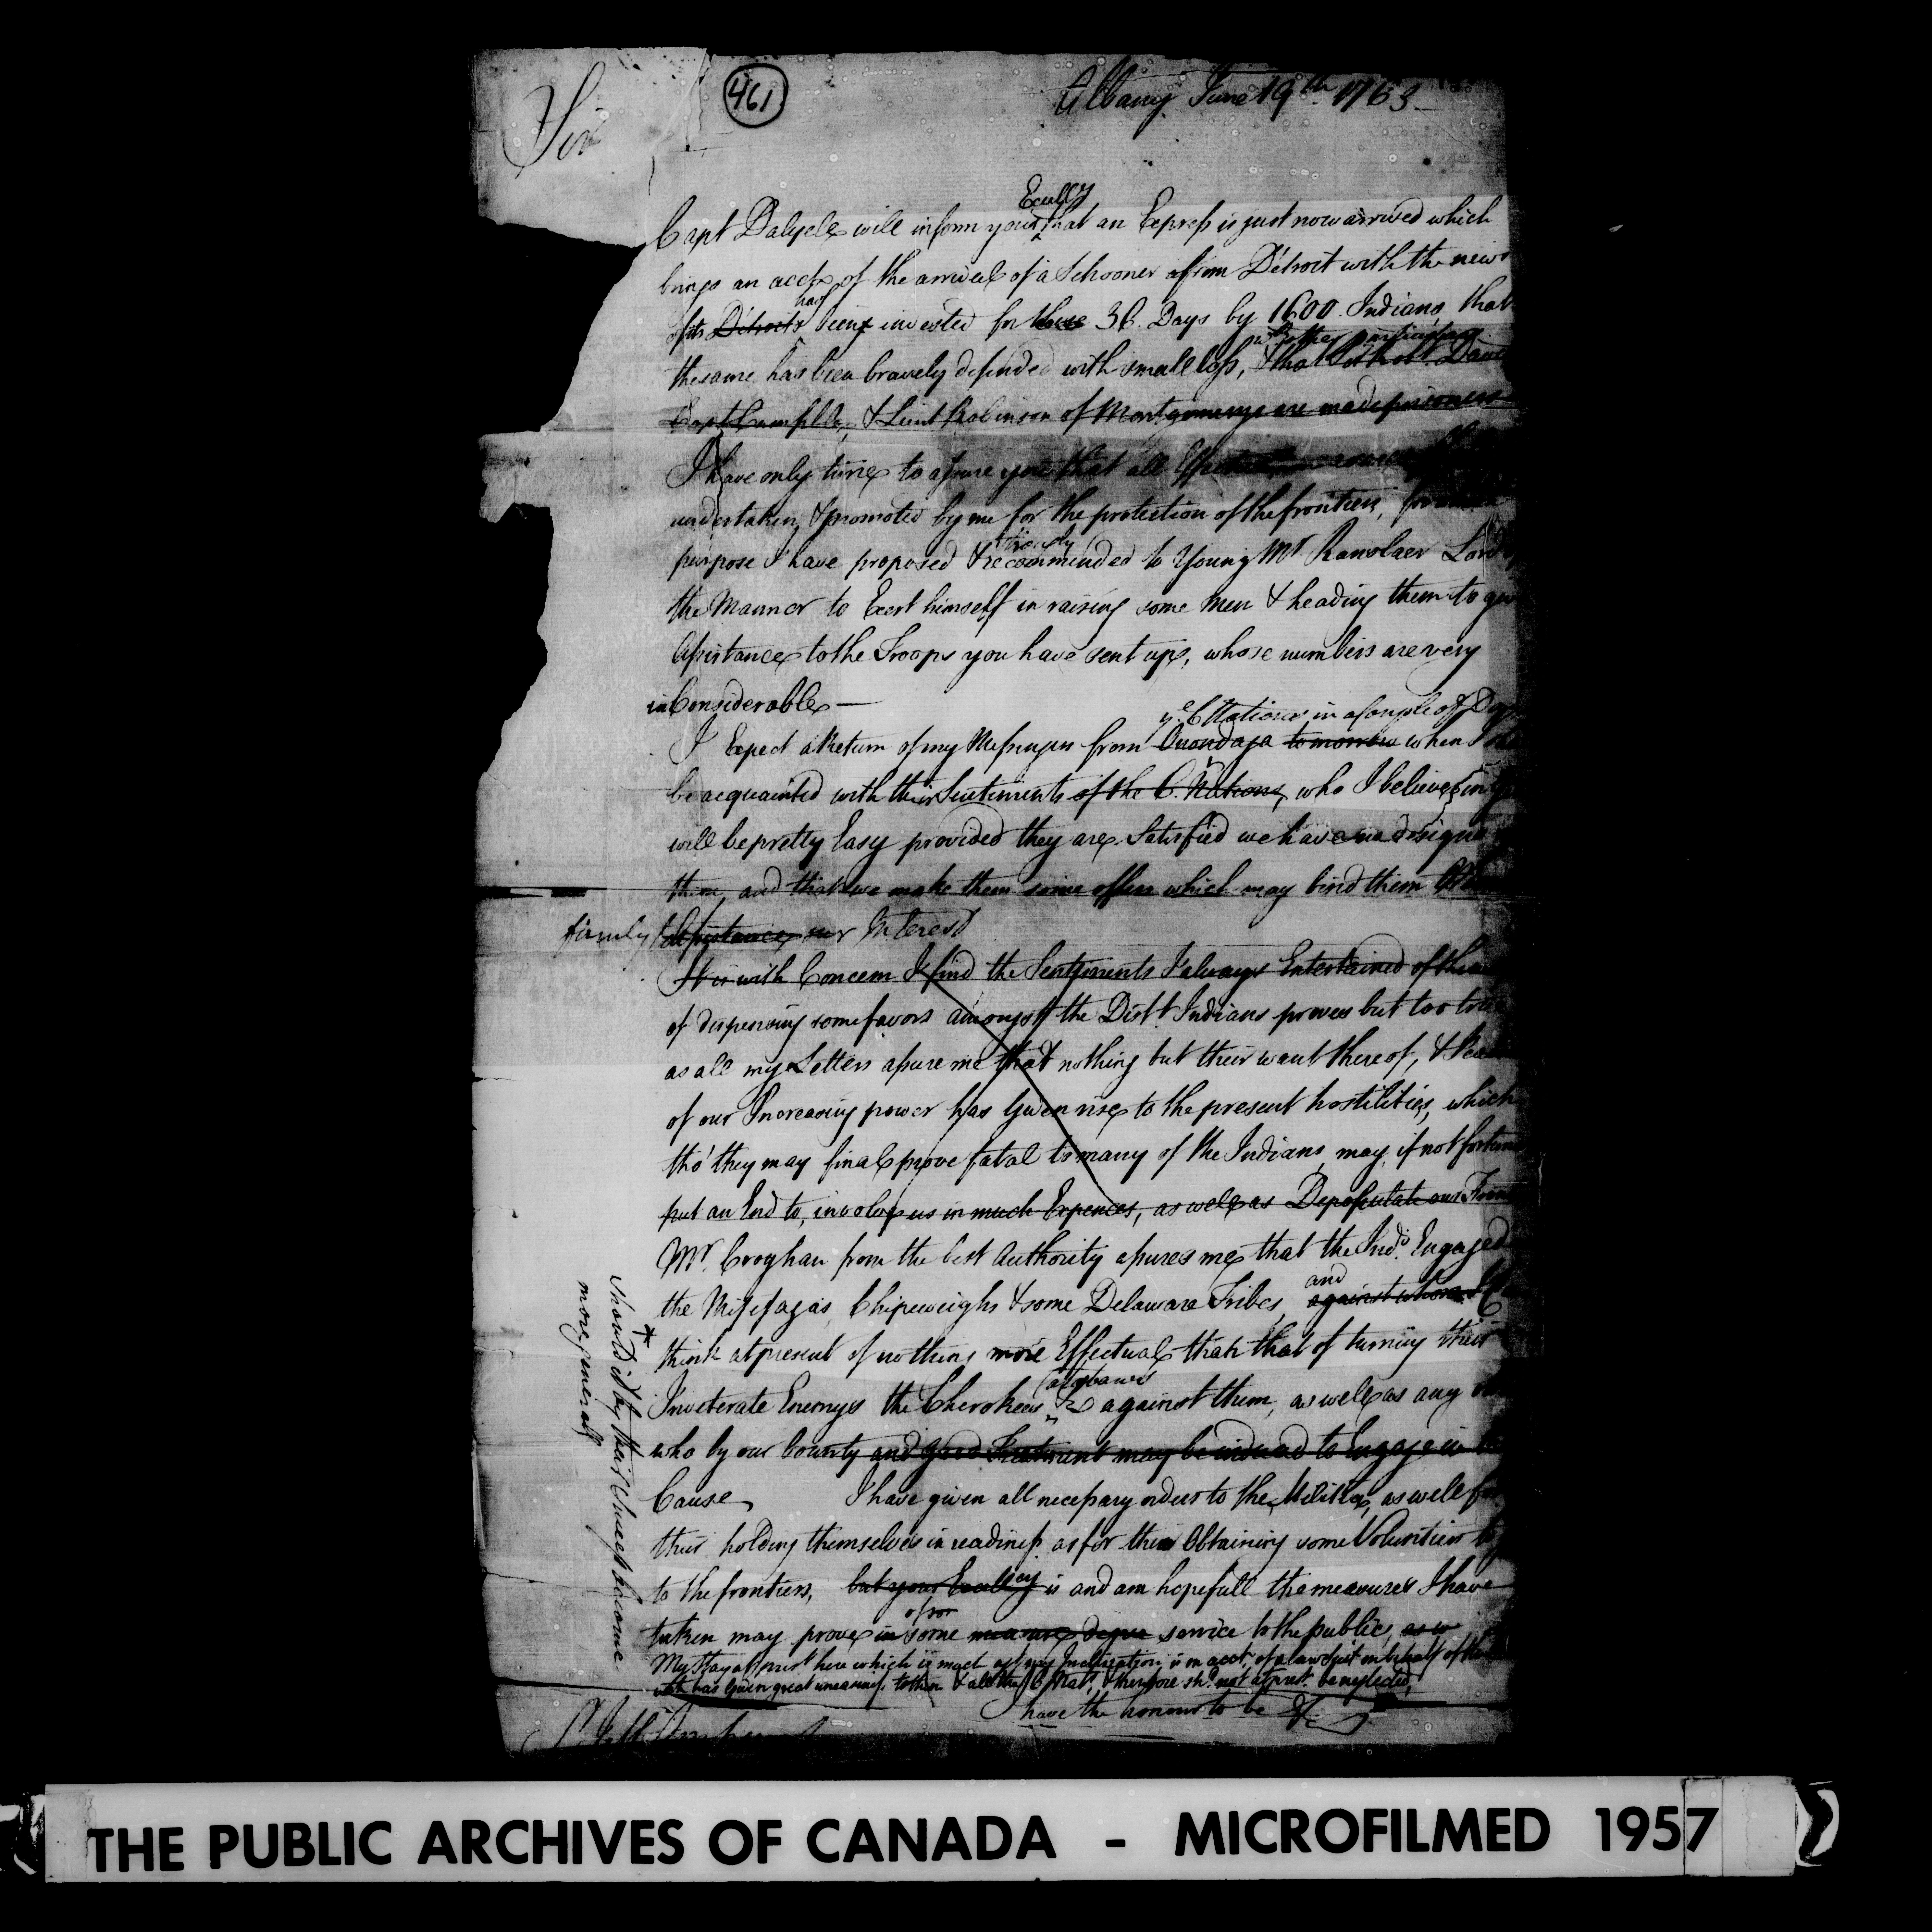 461
Albany June 19th 1763
Sir
Excellcy
Capt Dalyele will inform your that an Express is just now arrived which
brings an acct. of the arrival of a Schooner from Détroit with the news
has
of its Détroits being invested for these 36 Days by 1600 Indians, that
wth other particulars
the same has been bravely defended with small loss, & that
Capt Campble, & Lieut Robinson of Montgomerys are made prisoners
I have only time to assure you that all
undertaken, & promoted by me for the protection of the frontiers,
strongly
purpose I have proposed & recommended to Young Mr Ranslaer Lord
the Mannor to Exert himself in raising some Men & heading them to
Assistance to the Troops you have sent up, whose numbers are very
inConsiderable —
ye. 6 Nations in a Couple of
I Expect a Return of my Messenger from Onondaga tomorrow when
be acquainted with their Sentiments of the 6. Nations, who I believe
will be pretty Easy provided they are Satisfied we have no designs
them, and that we make them some offers which may bind them
firmly Assistance our Interest
It is with Concern I find the Sentiments I always Entertained of
of dispensing some favors amongst the Distt. Indians proves but too true
as all my Letters assure me that nothing but their want thereof, &
of our Increasing power has given rise to the present hostilities, which
tho' they may final prove fatal to many of the Indians, may, if not
put an End to, involve us in much Expences, as well as Depopulate our
Mr. Croghan from the best Authority assures me that the Inds. Engaged
and
the Missisagas, Chipeweighs & some Delaware Tribes, against whom
think at present of nothing more Effectual than that of turning their
Inveterate Enemys the Cherokees &c against them, as well as any
who by our bounty and good Treatment may be induced to Engage in
Cause I have given all necessary orders to the Militia, as well for
their holding themselves in readiness as for their Obtaining some Volunteers
to the frontiers, but your Excellcy is and am hopefull the measures I have
of
taken may prove in some measure degree service to the public, as
My Stay at prest. here which is much agt. my Inclination is on acct. of a Law Suit on behalf of
has given great uneasiness to them & all the 6 Nats., & therefore shd. not at prest. be neglected,
have the honour to be &c
* should it by their success become
more general
THE PUBLIC ARCHIVES OF CANADA - MICROFILMED 1957